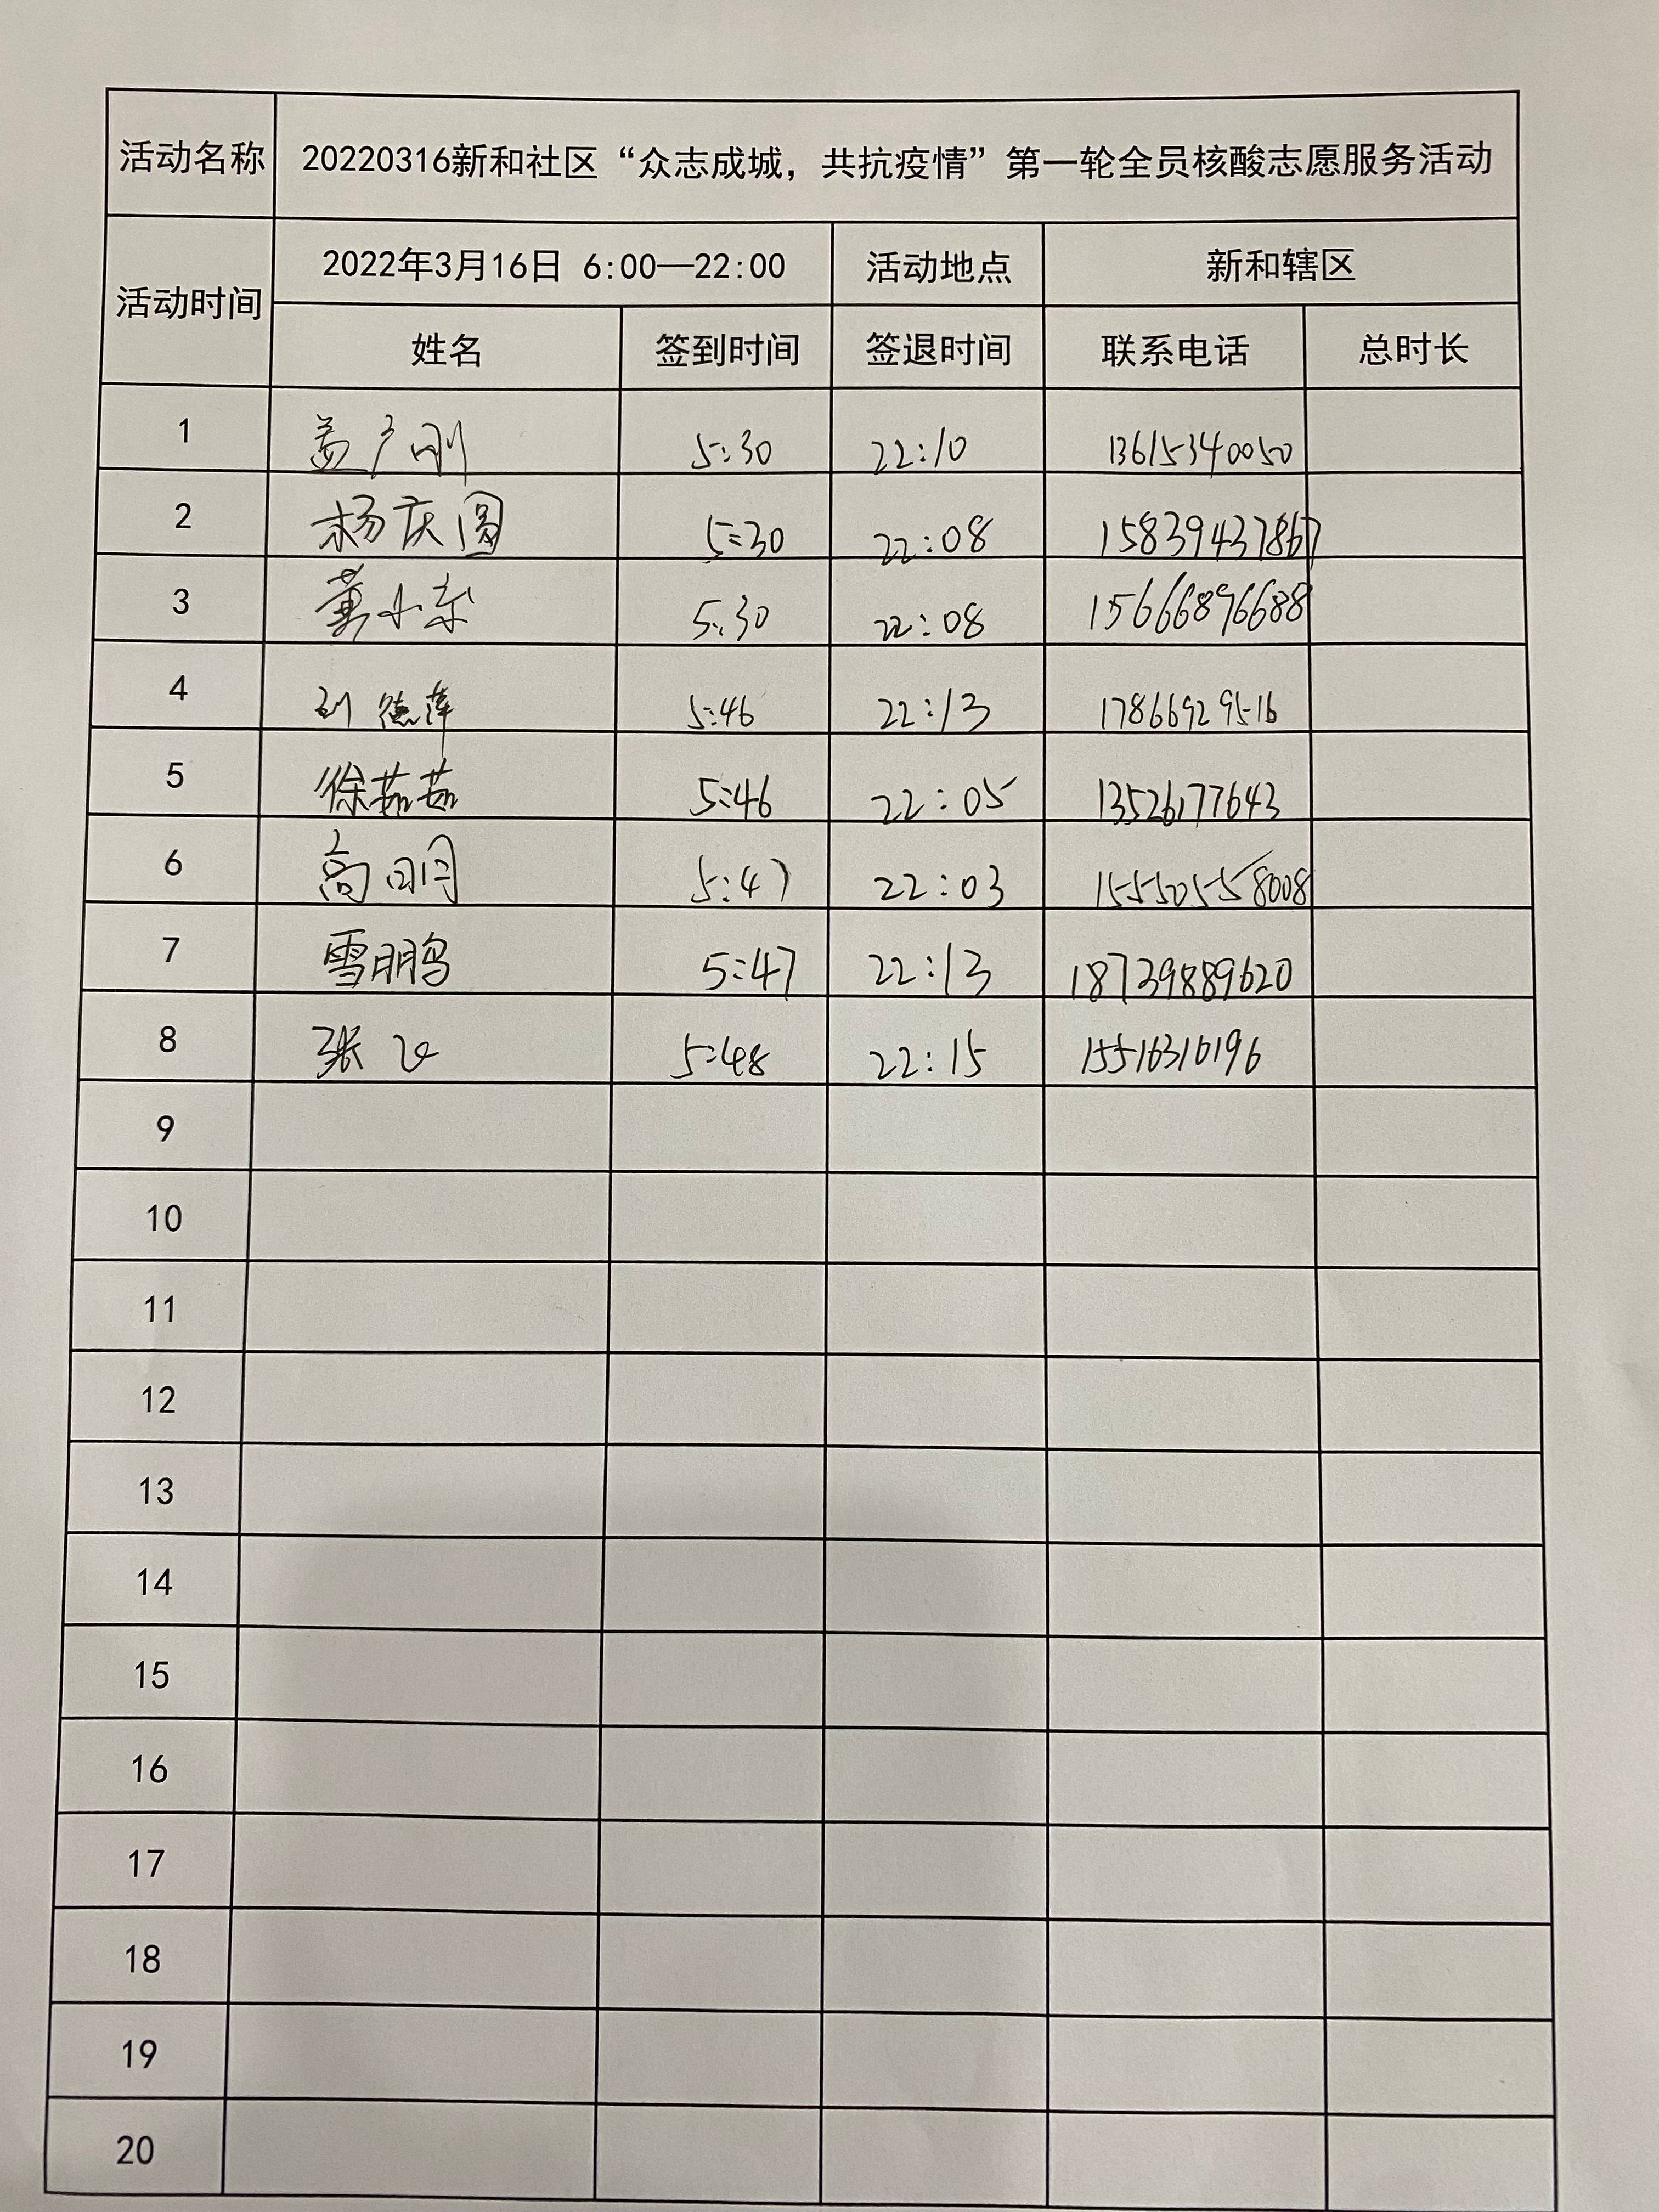 活动名称 20220316新和社区“众志成城，共抗疫情”第一轮全员核酸志愿服务活动
活动时间 2022年3月16日 6:00—22:00 活动地点 新和辖区
姓名 签到时间 签退时间 联系电话 总时长
1 盖广刚 5:30 22:10 13615340050
2 杨庆圆 5:30 22:08 15839437867
3 黄小东 5:30 22:08 15666896688
4 刘德萍 5:46 22:13 17866929516
5 徐茹茹 5:46 22:05 13526177643
6 高明月 5:47 22:03 15550558008
7 雪鹏鸟 5:47 22:13 18739889620
8 张飞 5:48 22:15 15516310196
9
10
11
12
13
14
15
16
17
18
19
20